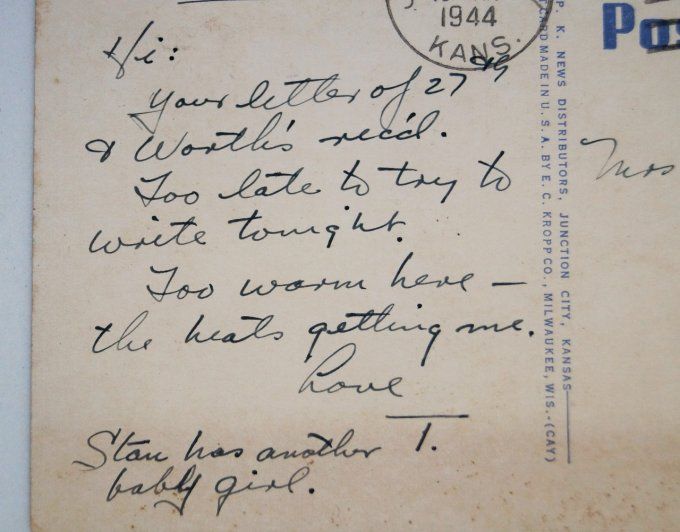 1944
KANS.
Hi:
Your letter of 27th
& Worth's rec'd.
Too late to try to
write tonight.
Too warm here —
the heats getting me.
Love
1.
Stan has another
baby girl.
P. K. NEWS DISTRIBUTORS, JUNCTION CITY, KANSAS
CARD MADE IN U.S.A. BY E. C. KROPP CO., MILWAUKEE, WIS.-(CAY)
Pos
Mrs